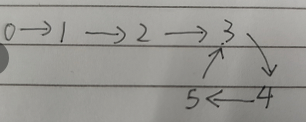 0 → 1 → 2 → 3
5 ← 4